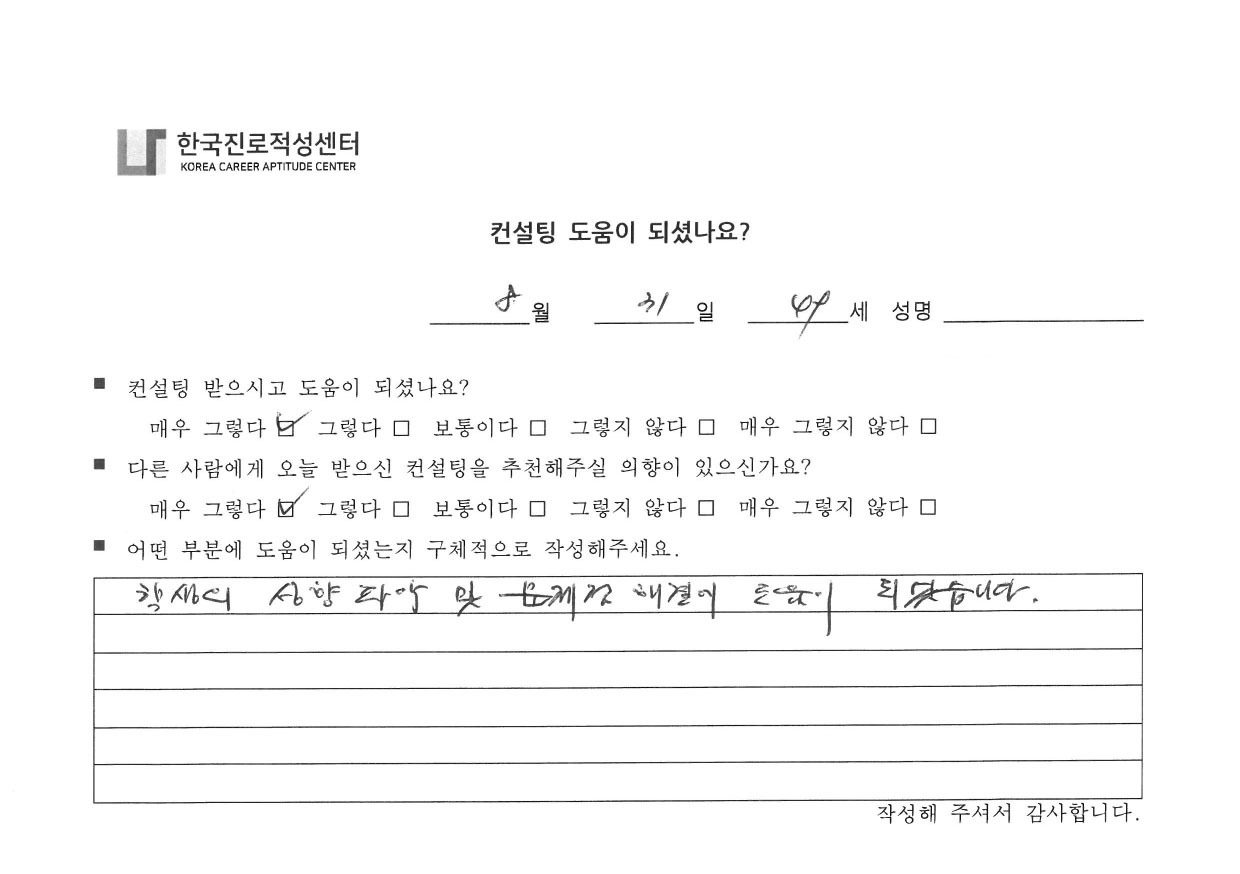 한국진로적성센터
KOREA CAREER APTITUDE CENTER
컨설팅 도움이 되셨나요?
8월 31일 49세 성명
■ 컨설팅 받으시고 도움이 되셨나요?
매우 그렇다 ☑ 그렇다 □ 보통이다 □ 그렇지 않다 □ 매우 그렇지 않다 □
■ 다른 사람에게 오늘 받으신 컨설팅을 추천해주실 의향이 있으신가요?
매우 그렇다 ☑ 그렇다 □ 보통이다 □ 그렇지 않다 □ 매우 그렇지 않다 □
■ 어떤 부분에 도움이 되셨는지 구체적으로 작성해주세요.
학생의 성향 파악 및 문제점 해결에 도움이 되었습니다.
작성해 주셔서 감사합니다.